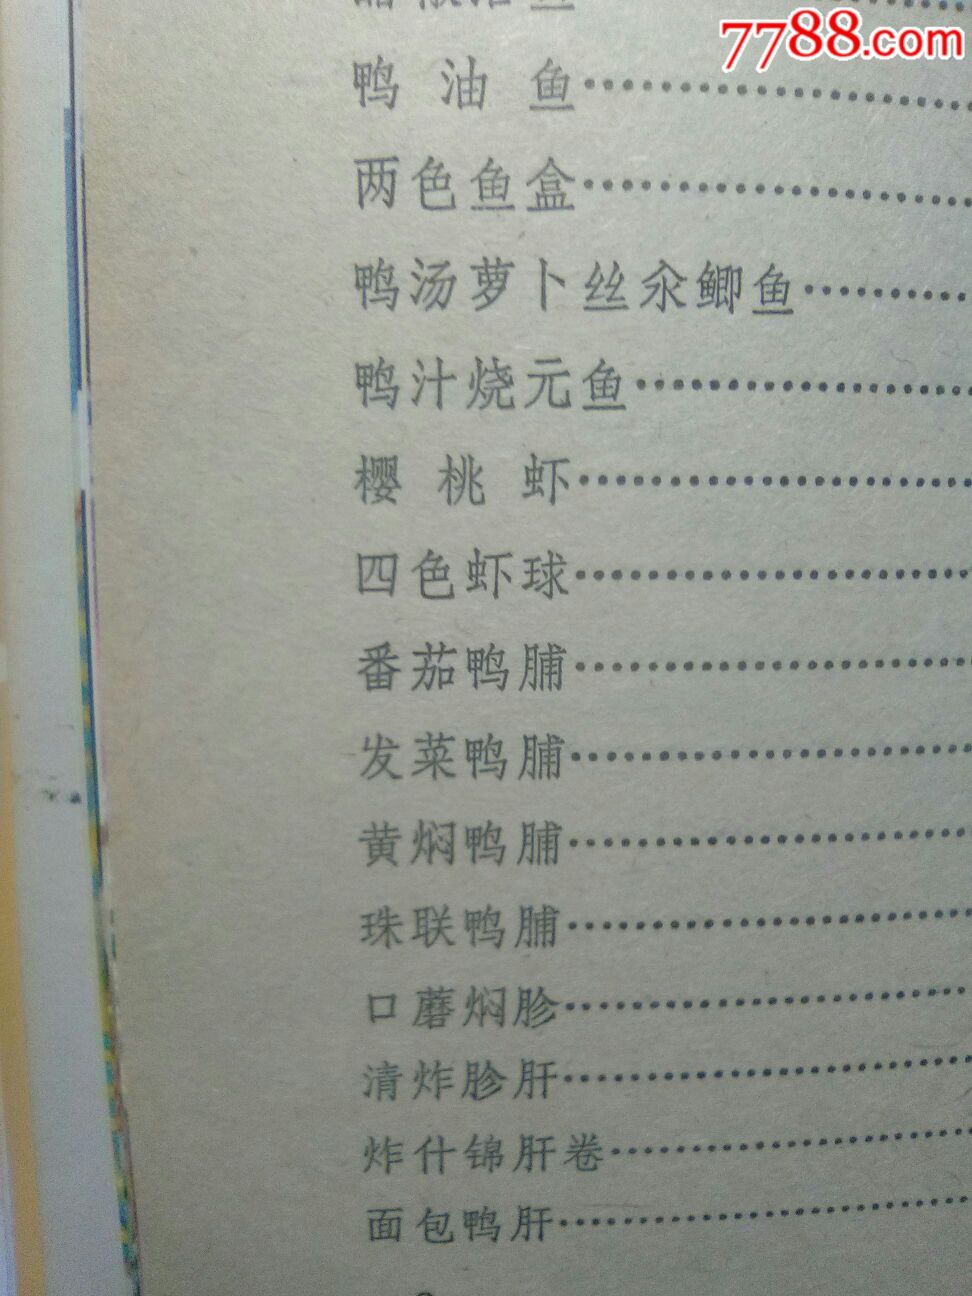 7788.com
鸭油鱼……………
两色鱼盒……………
鸭汤萝卜丝汆鲫鱼……………
鸭汁烧元鱼……………
樱桃虾……………
四色虾球……………
番茄鸭脯……………
发菜鸭脯……………
黄焖鸭脯……………
珠联鸭脯……………
口蘑焖胗……………
清炸胗肝……………
炸什锦肝卷……………
面包鸭肝……………